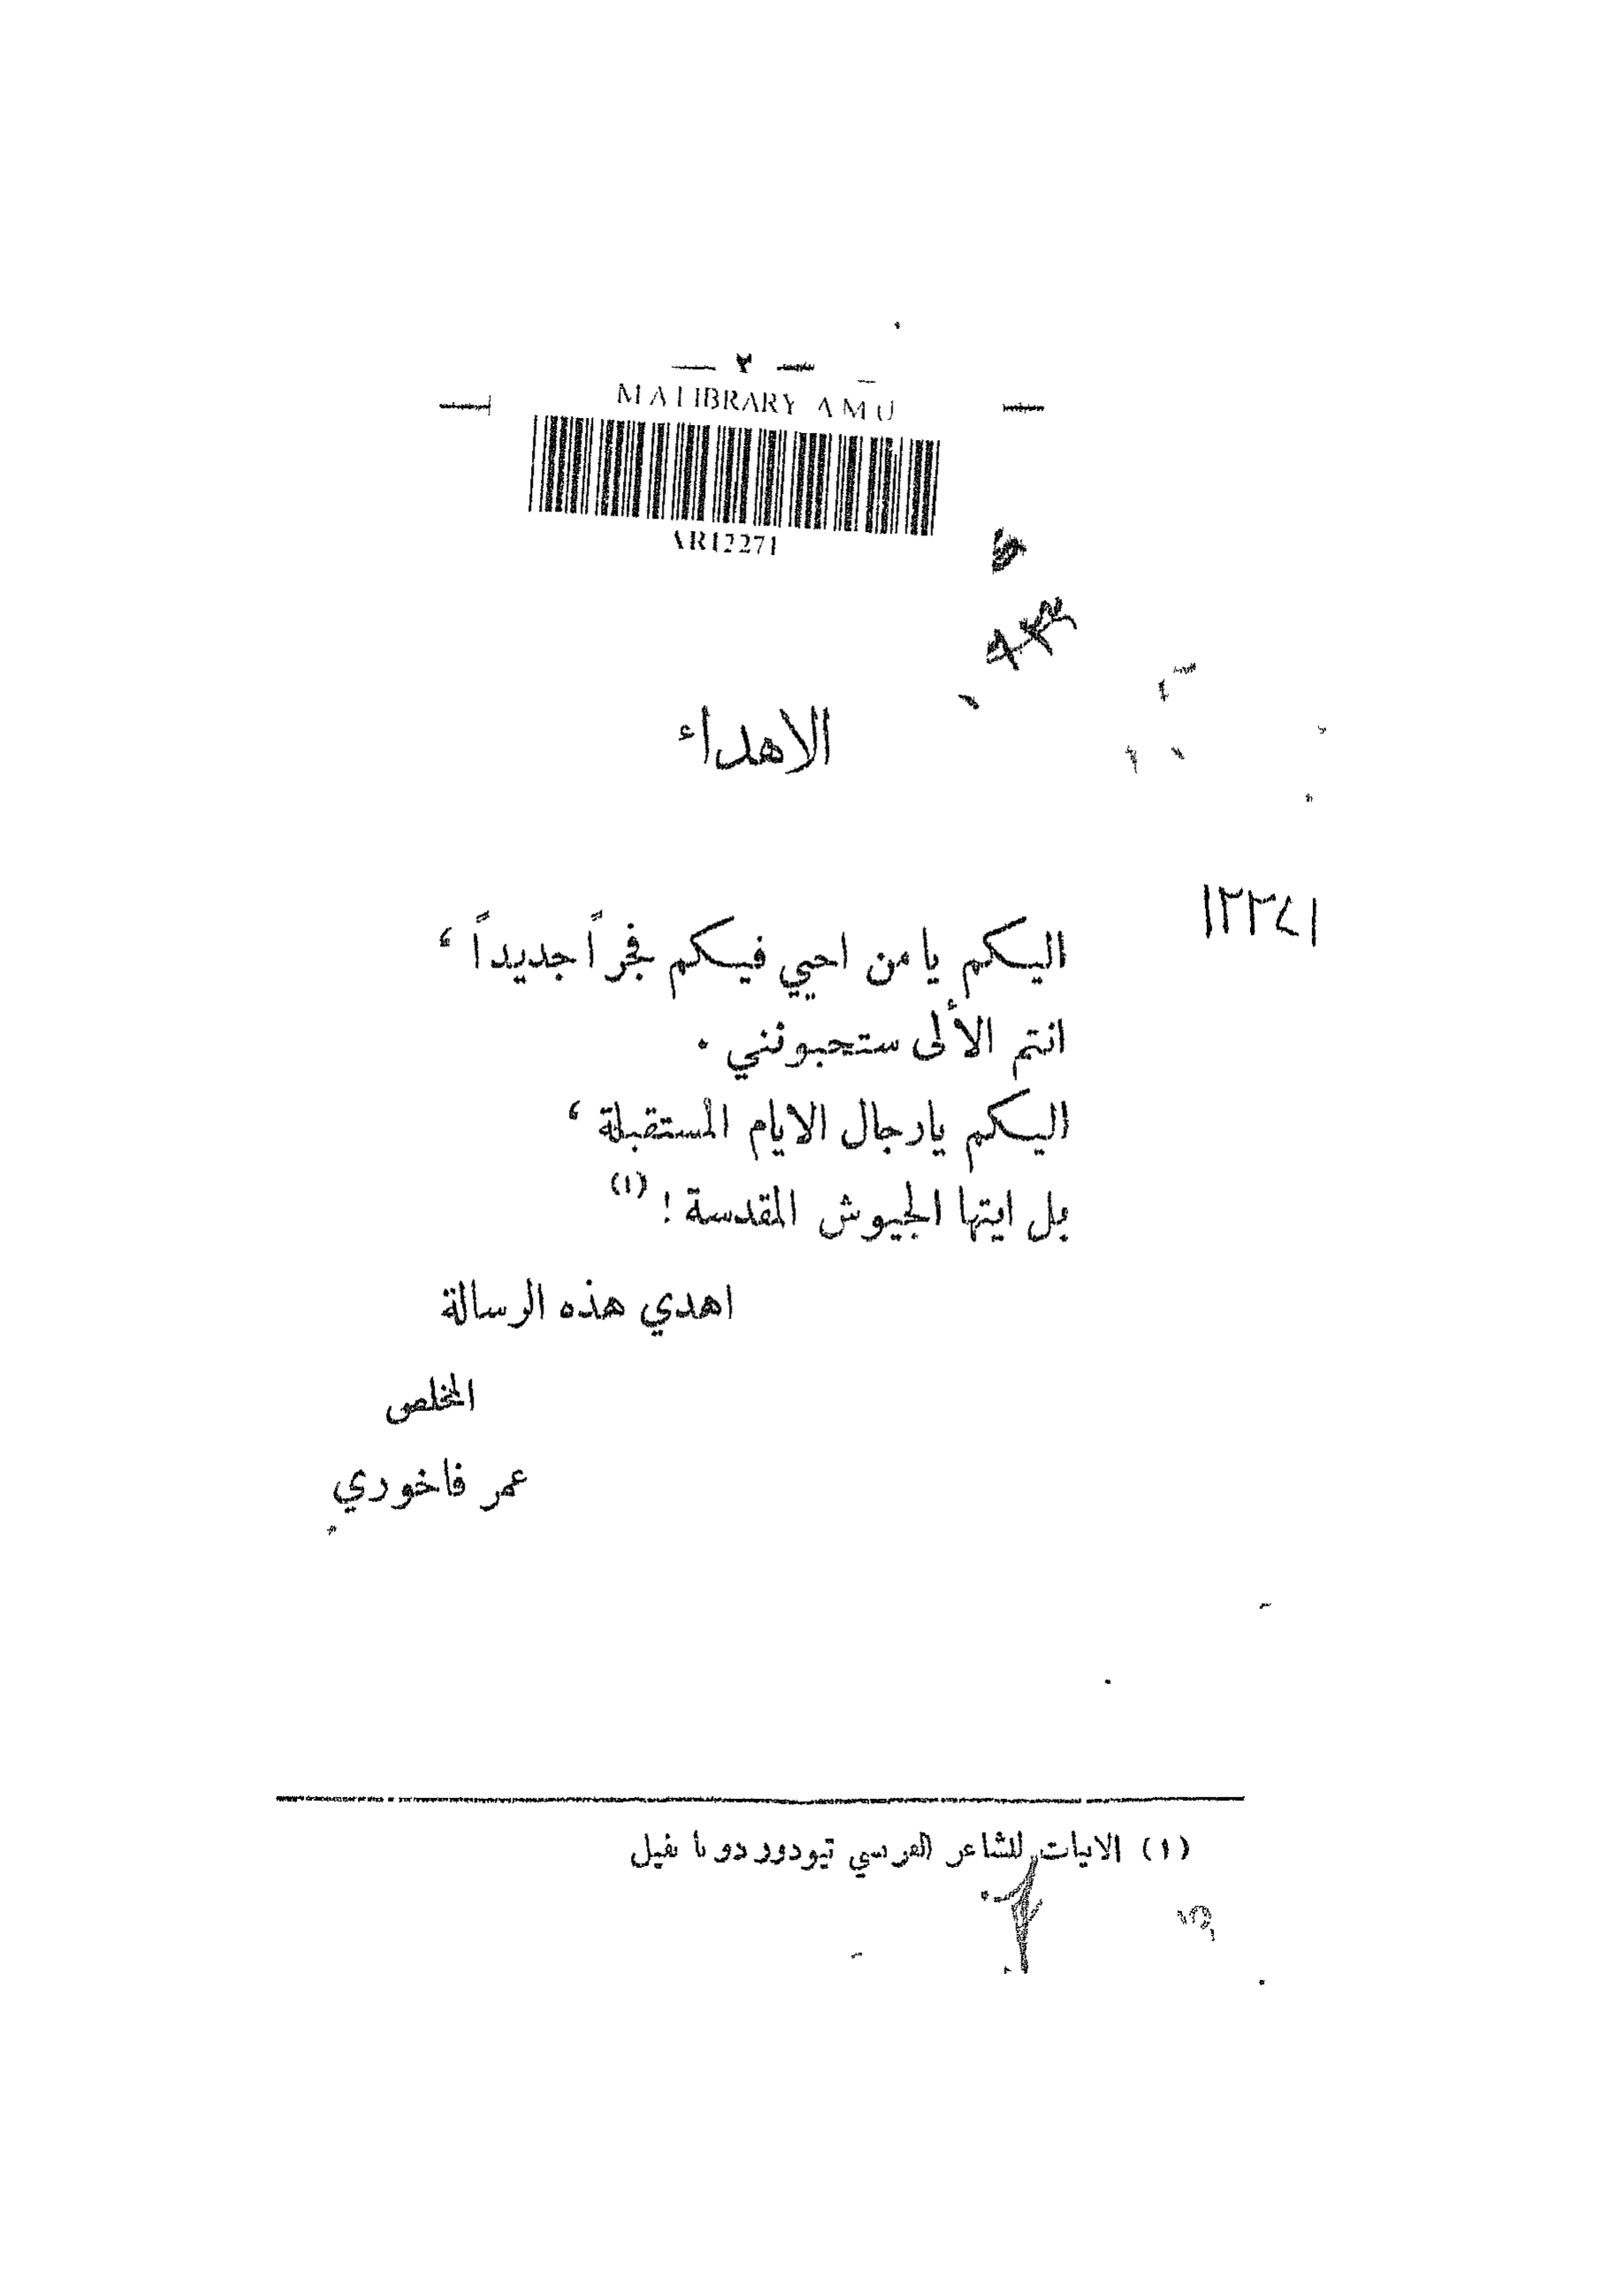 — ٢ —
M A LIBRARY A M U
AR12271
الاهداء
اليكم يا من احيي فيكم فجراً جديداً ،
انتم الألى ستحبونني .
اليكم يارجال الايام المستقبلة ،
بل ايتها الجيوش المقدسة ! (١)
اهدي هذه الرسالة
المخلص
عمر فاخوري
(١) الابيات للشاعر الفرنسي تيودور دو بانفيل